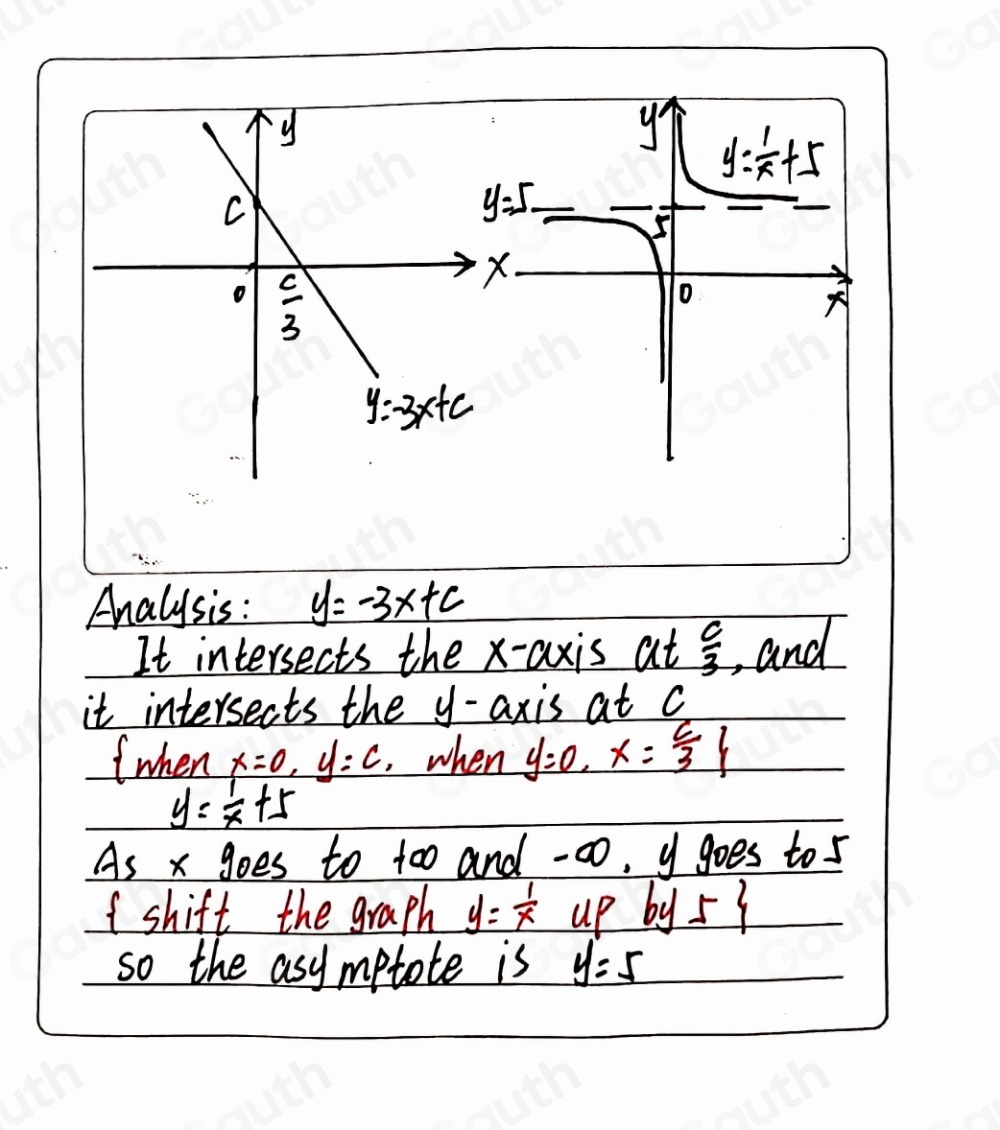 y
C
0
c/3
x
y=-3x+c
y
y=1/x+5
y=5
5
0
x
Analysis: y=-3x+c
It intersects the x-axis at c/3, and
it intersects the y-axis at c
{when x=0, y=c, when y=0, x=c/3}
y=1/x+5
As x goes to +∞ and -∞, y goes to 5
{shift the graph y=1/x up by 5}
so the asymptote is y=5
Gauth